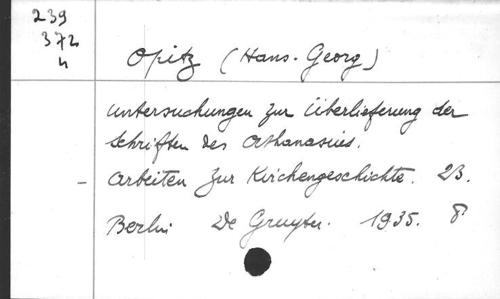 239
372
4
Opitz (Hans-Georg)
Untersuchungen zur Überlieferung der
Schriften des Athanasius.
- Arbeiten zur Kirchengeschichte. 23.
Berlin De Gruyter. 1935. 8°